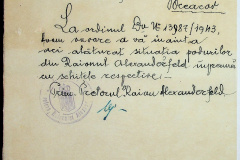 Breaeav
La ordinul Dv. № 13987/1943,
avem onoare a vă înainta
aci alăturat situația podurilor
din Raionul Alexanderfeld, împreună
cu schițele respective;-
Prim Pretorul Raion Alexanderfeld